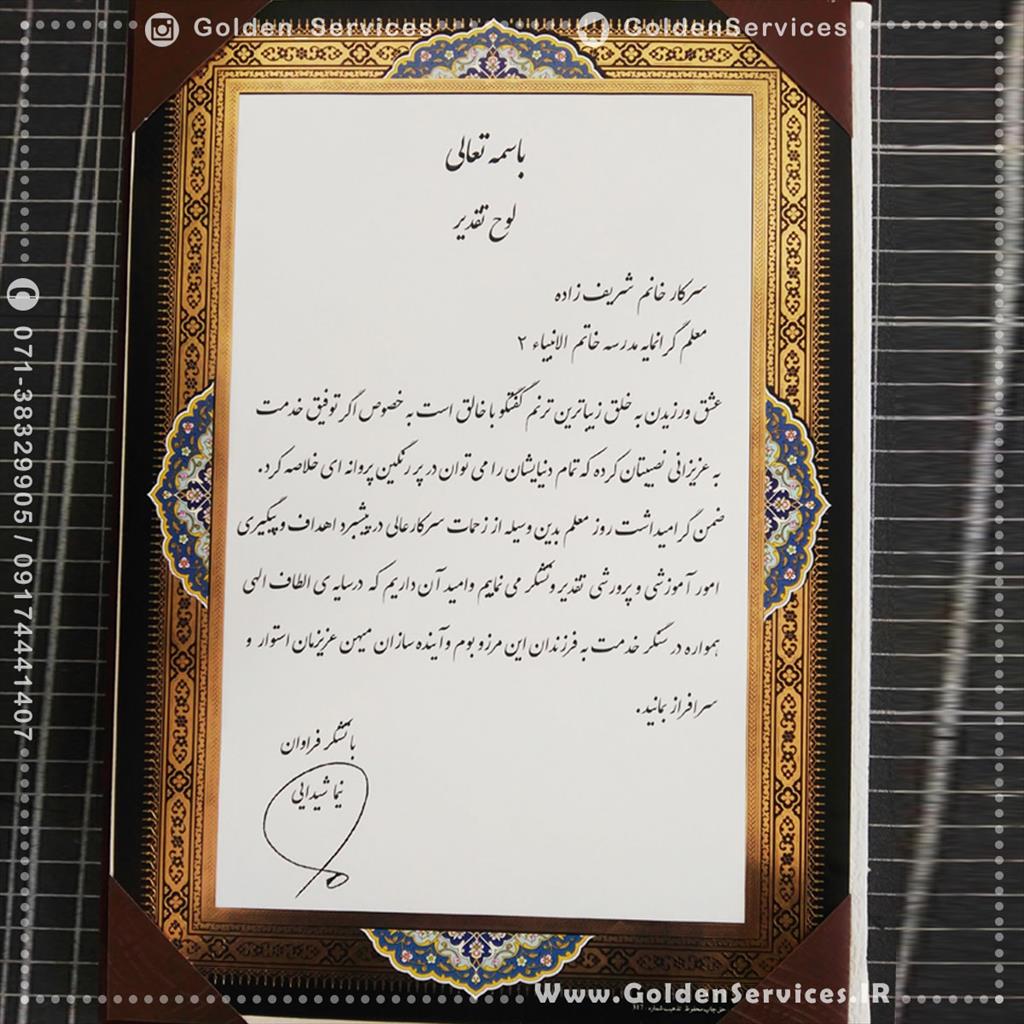 Golden Services
GoldenServices
باسمه تعالی
لوح تقدیر
سرکار خانم شریف زاده
معلم گرانمایه مدرسه خاتم الانبیاء ۲
عشق ورزیدن به خلق زیباترین ترنم گفتگو با خالق است به خصوص اگر توفیق خدمت
به عزیزانی نصیبتان کرده که تمام دنیایشان را می توان در پر رنگین پروانه ای خلاصه کرد.
ضمن گرامیداشت روز معلم بدین وسیله از زحمات سرکارعالی در پیشبرد اهداف و پیگیری
امور آموزشی و پرورشی تقدیر و تشکر می نماییم و امید آن داریم که در سایه ی الطاف الهی
همواره در سنگر خدمت به فرزندان این مرز و بوم و آینده سازان میهن عزیزمان استوار و
سرافراز بمانید.
با تشکر فراوان
نیما شیدایی
071-38329905 / 09174441407
Www.GoldenServices.IR
حق چاپ محفوظ تذهیب شماره